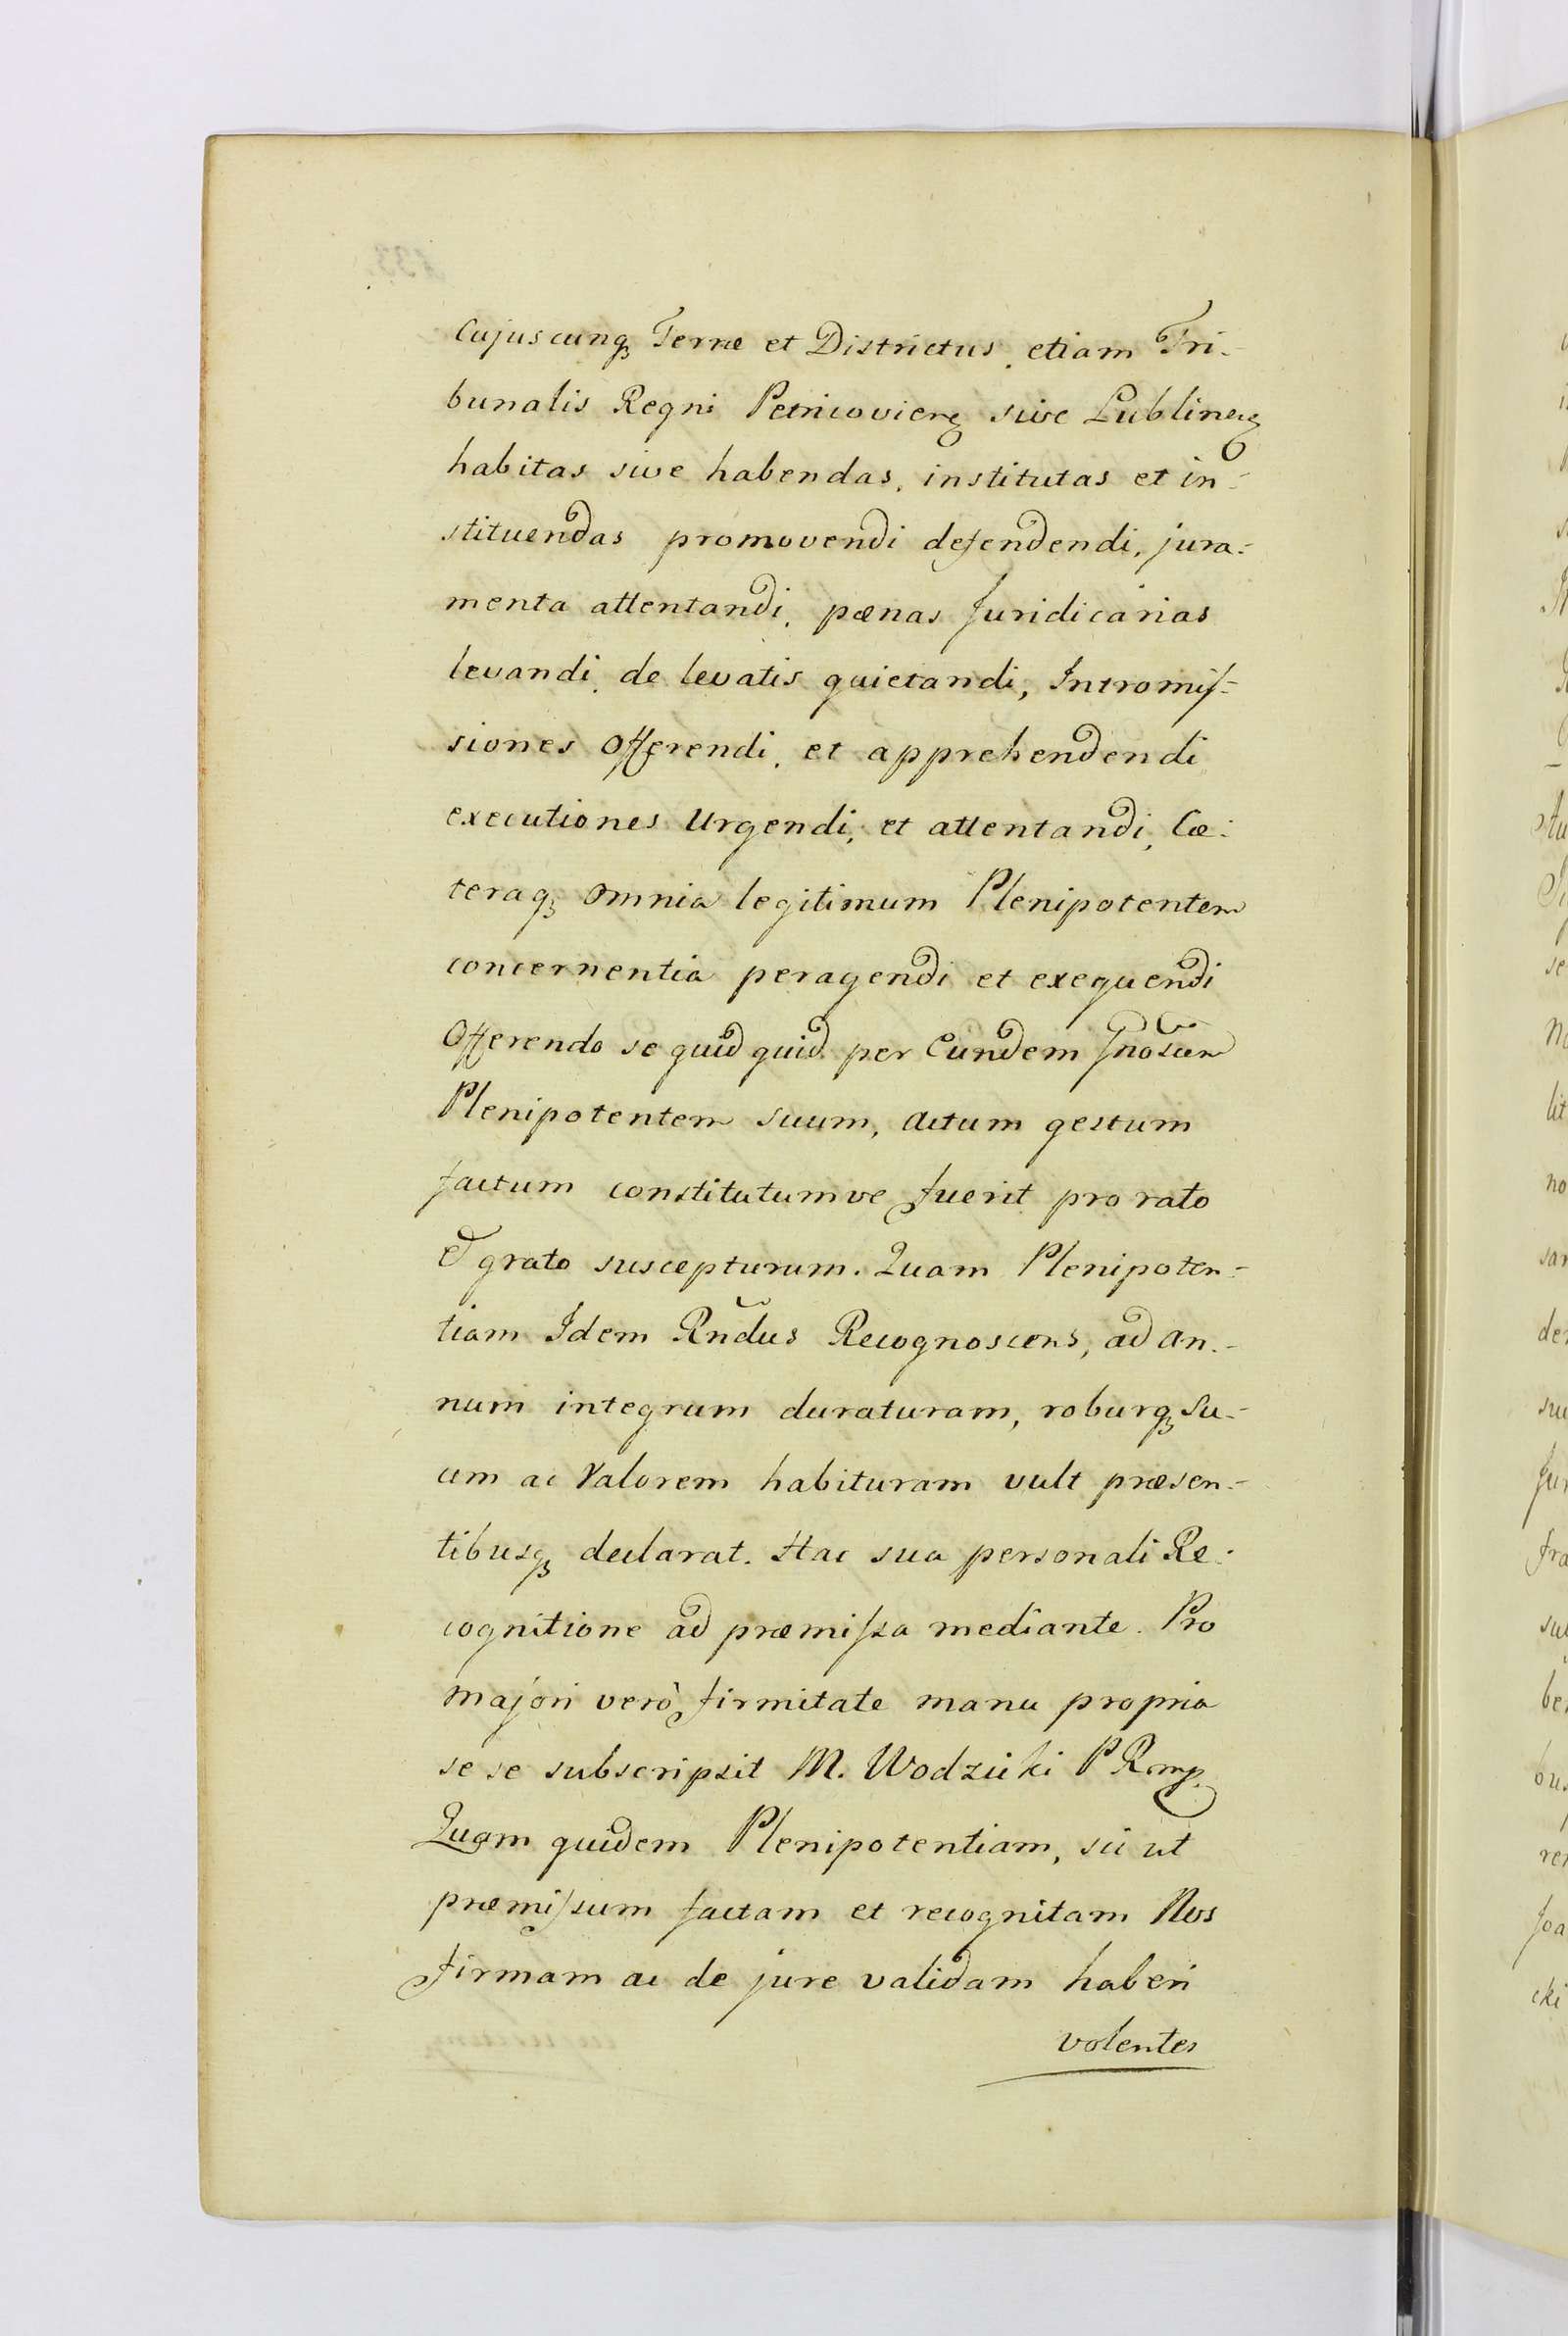 Cujuscunq Terræ et Districtus, etiam Tri-
bunalis Regni Petricovien sive Lublinen
habitas sive habendas, institutas et in-
stituendas promovendi defendendi, jura-
menta attentandi, pænas Juridicarias
levandi, de levatis quietandi, Intromis-
siones Offerendi, et apprehendendi
executiones Urgendi, et attentandi, Cæ-
teraq omnia legitimum Plenipotentem
concernentia peragendi et exequendi
Offerendo se quid quid per Eundem Gnosum
Plenipotentem suum, actum gestum
factum constitutumve fuerit pro rato
et grato suscepturum. Quam Plenipoten-
tiam Idem Rndus Recognoscens, ad an-
num integrum duraturam, roburq su-
um ac Valorem habituram vult præsen-
tibusq declarat. Hac sua personali Re-
cognitione ad præmissa mediante. Pro
majori verò firmitate manu propria
se se subscripsit M. Wodzicki P R mp.
Quam quidem Plenipotentiam, sic ut
præmissum factam et recognitam Nos
firmam ac de jure validam haberi
volentes